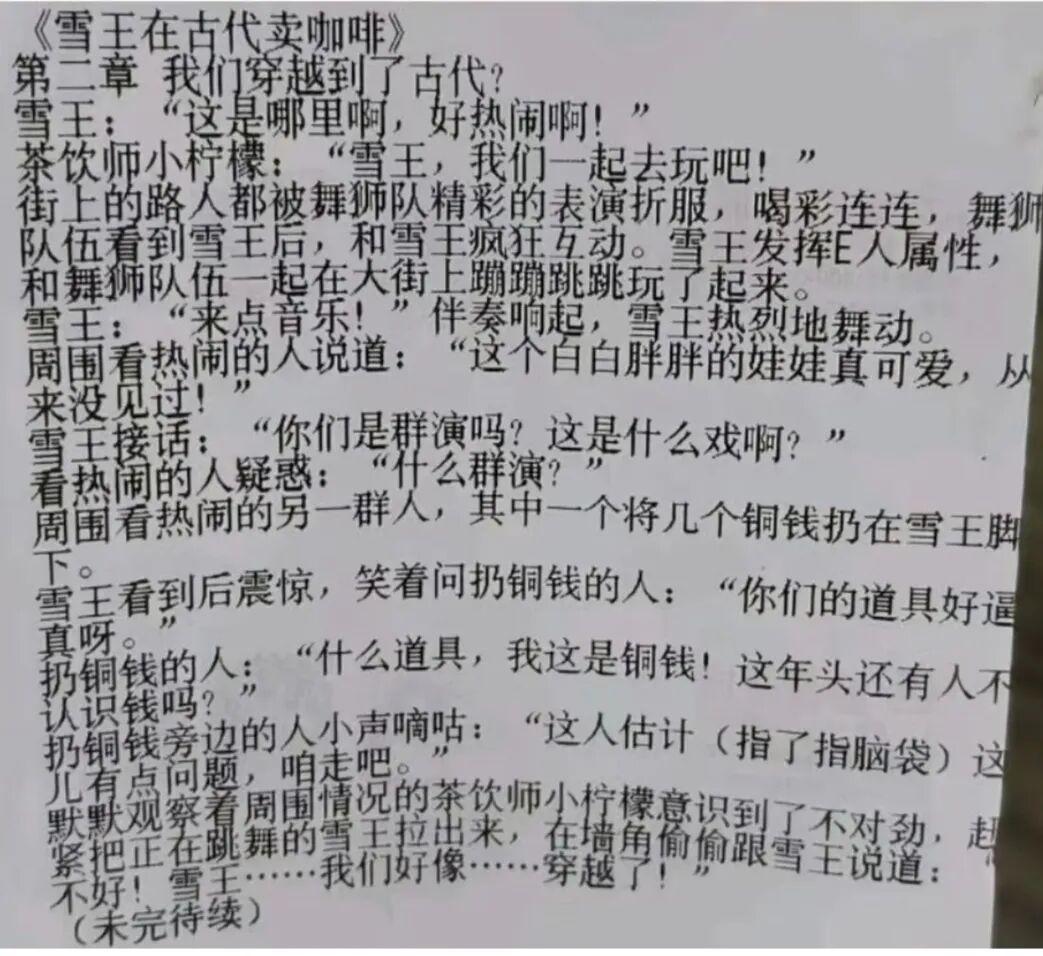 《雪王在古代卖咖啡》
第二章 我们穿越到了古代?
雪王：“这是哪里啊，好热闹啊！”
茶饮师小柠檬：“雪王，我们一起去玩吧！”
街上的路人都被舞狮队精彩的表演折服，喝彩连连，舞狮
队伍看到雪王后，和雪王疯狂互动。雪王发挥E人属性，
和舞狮队伍一起在大街上蹦蹦跳跳玩了起来。
雪王：“来点音乐！”伴奏响起，雪王热烈地舞动。
周围看热闹的人说道：“这个白白胖胖的娃娃真可爱，从
来没见过！”
雪王接话：“你们是群演吗？这是什么戏啊？”
看热闹的人疑惑：“什么群演？”
周围看热闹的另一群人，其中一个将几个铜钱扔在雪王脚
下。
雪王看到后震惊，笑着问扔铜钱的人：“你们的道具好逼
真呀。”
扔铜钱的人：“什么道具，我这是铜钱！这年头还有人不
认识钱吗？”
扔铜钱旁边的人小声嘀咕：“这人估计（指了指脑袋）这
儿有点问题，咱走吧。”
默默观察着周围情况的茶饮师小柠檬意识到了不对劲，赶
紧把正在跳舞的雪王拉出来，在墙角偷偷跟雪王说道：“
不好！雪王……我们好像……穿越了！”
（未完待续）